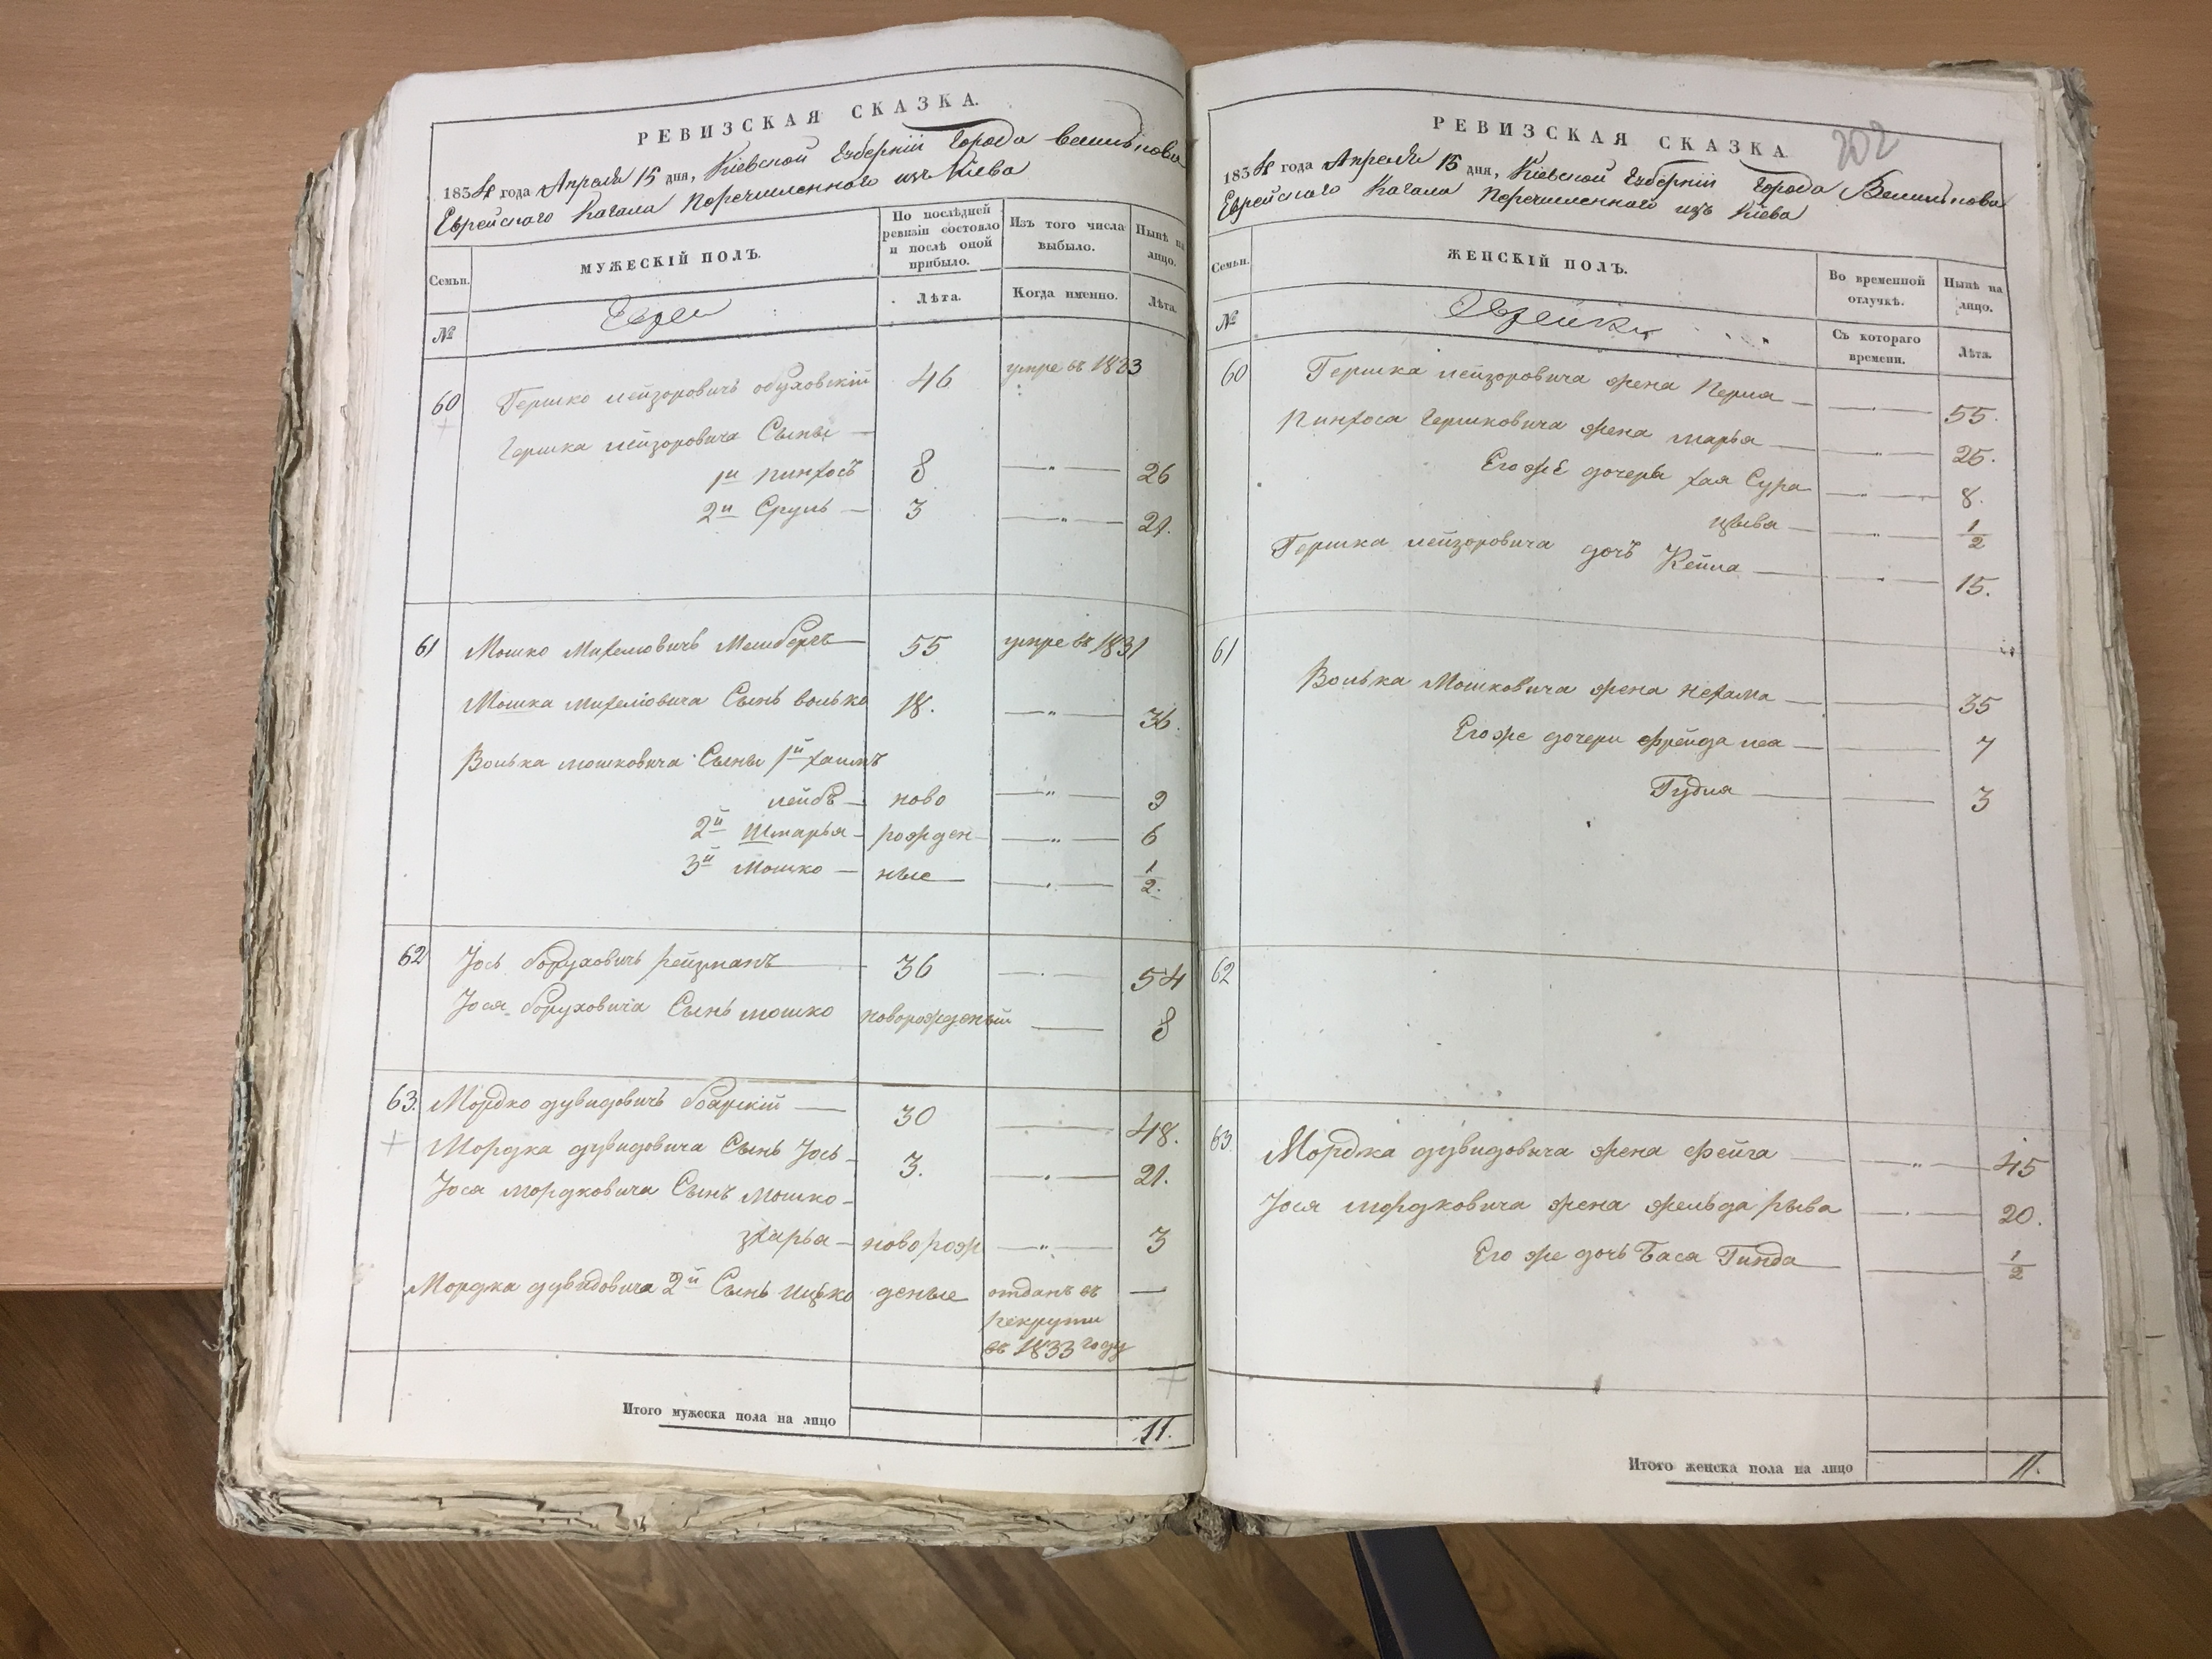 РЕВИЗСКАЯ СКАЗКА.
1834 года Апреля 15 дня, Кіевской Губерніи Города Василькова
Еврейскаго Кагала Перечисленнаго изъ Кіева
Семьи.
МУЖЕСКІЙ ПОЛЪ.
По послѣдней ревизіи состояло и послѣ оной прибыло.
Изъ того числа выбыло.
Нынѣ на лицо.
№
Евреи
Лѣта.
Когда именно.
Лѣта.
60 Гершко лейзоровичъ обуховскій 46 умре въ 1833
Гершка лейзоровича Сыны
1й пинхосъ 8 26
2й Сруль 3 21.
61 Мошко Михелювичъ 55 умре въ 1831
Мошка михелювича Сынъ волько 18. 36.
Волька мошковича Сыны 1й хаимъ
лейбъ ново 9
2й Шмарья рожден 6
3й Мошко ные 1/2.
62 Іось боруховичъ рейзманъ 36 54
Іося боруховича Сынъ мошко новорожденый 8
63. Мордко дувидовичъ боярскій 30 48.
Мордка дувидовича Сынъ Іось 3. 21.
Іося мордковича Сынъ мошко
зхарья новорож 3
Мордка дувидовича 2й Сынъ ицко деные отданъ въ
рекруты
въ 1833 году
Итого мужеска пола на лицо 11.
202
РЕВИЗСКАЯ СКАЗКА
1834 года Апреля 15 дня, Кіевской Губерніи Города Василькова
Еврейскаго Кагала Перечисленнаго изъ Кіева
Семьи.
ЖЕНСКІЙ ПОЛЪ.
Во временной отлучкѣ.
Нынѣ на лицо.
№
Еврейки
Съ котораго времени.
Лѣта.
60 Гершка лейзоровича жена Перля 55.
Пинхоса Гершковича жена марья 25.
Его же дочери хая Сура 8.
цыва 1/2
Гершка лейзоровича дочь Кейла 15.
61
Волька Мошковича жена нехама 35
Его же дочери фрейда леа 7
Гудля 3
62
63 Мордка дувидовича жена фейга 45
Іося мордковича жена жельда рыва 20.
Его же дочь Баса Гинда 1/2
Итого женска пола на лицо 11.